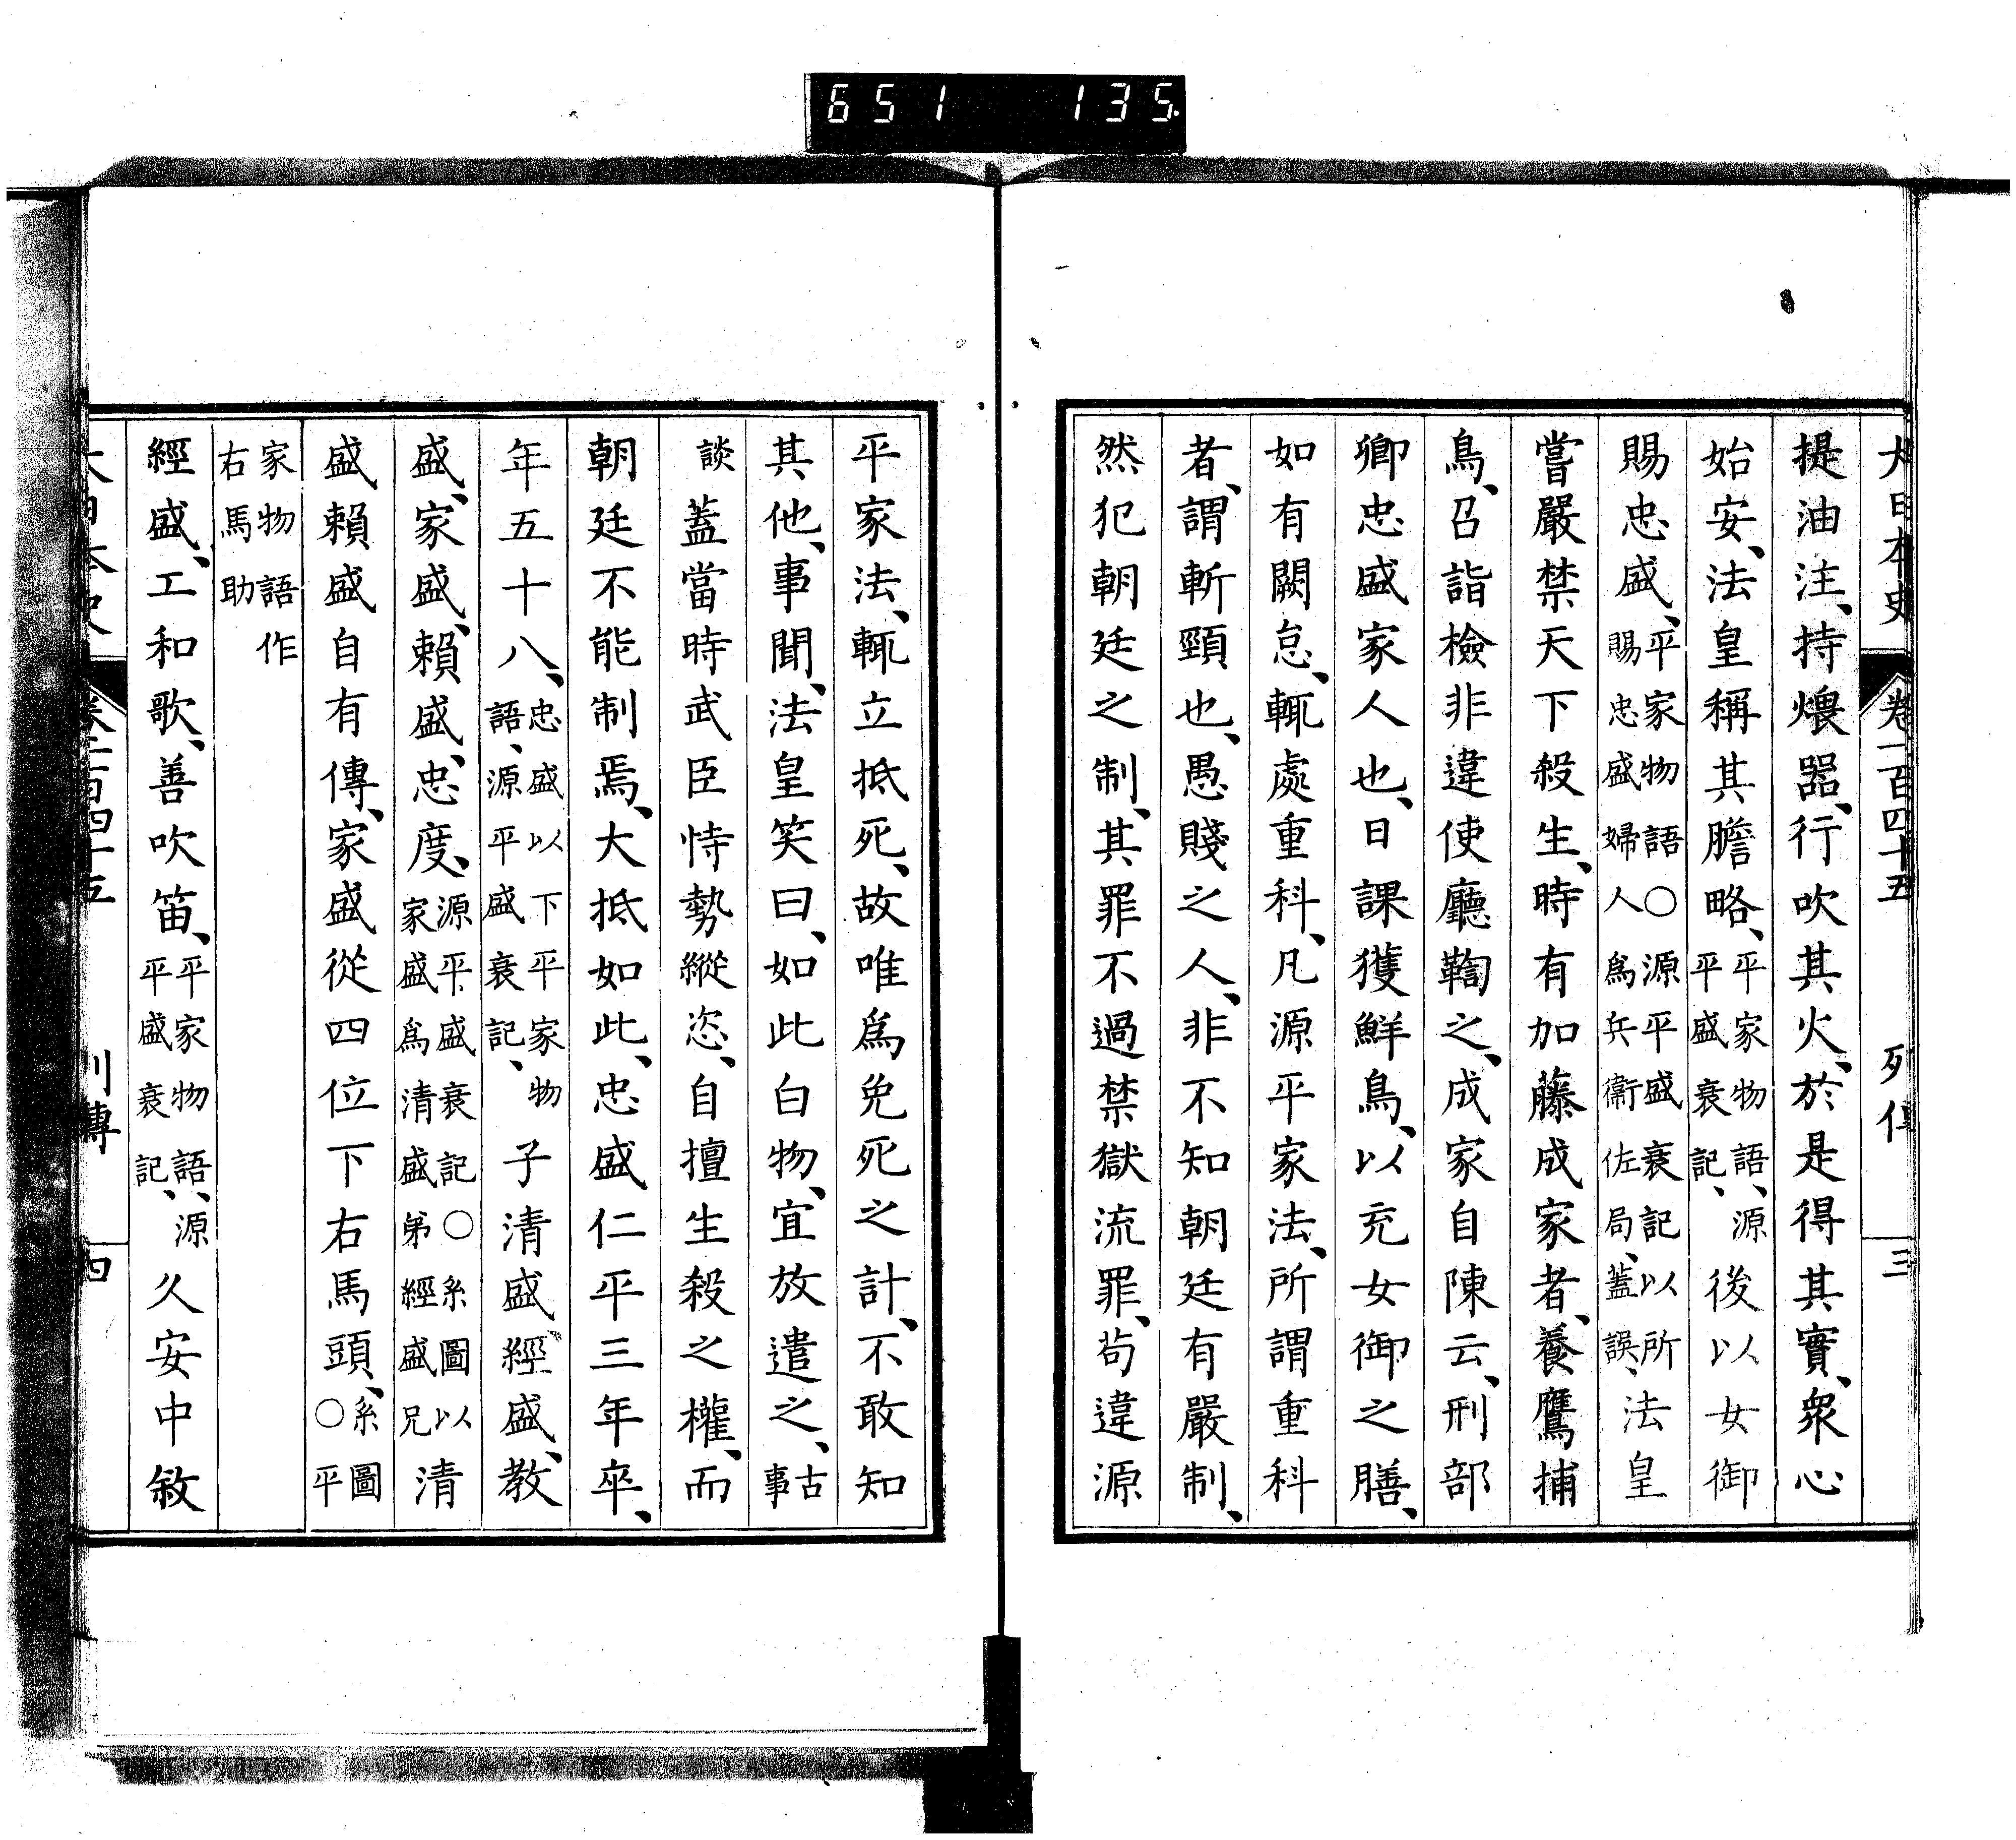 651 135
大日本史 卷一百四十五 列傳 三
提油注、持煨器、行吹其火、於是得其實、衆心
始安、法皇稱其膽略、平家物語、源平盛衰記、後以女御
賜忠盛、平家物語○源平盛衰記以所賜忠盛婦人爲兵衞佐局、蓋誤、法皇
嘗嚴禁天下殺生、時有加藤成家者、養鷹捕
鳥、召詣檢非違使廳鞫之、成家自陳云、刑部
卿忠盛家人也、日課獲鮮鳥、以充女御之膳、
如有闕怠、輒處重科、凡源平家法、所謂重科
者、謂斬頸也、愚賤之人、非不知朝廷有嚴制、
然犯朝廷之制、其罪不過禁獄流罪、苟違源
平家法、輒立抵死、故唯爲免死之計、不敢知
其他、事聞、法皇笑曰、如此白物、宜放遣之、古事
談 蓋當時武臣恃勢縱恣、自擅生殺之權、而
朝廷不能制焉、大抵如此、忠盛仁平三年卒、
年五十八、忠盛以下平家物語、源平盛衰記、子清盛、經盛、教
盛、家盛、賴盛、忠度、源平盛衰記○系圖以家盛爲清盛弟經盛兄清
盛賴盛自有傳、家盛從四位下右馬頭、系圖○平
家物語作右馬助
經盛、工和歌、善吹笛、平家物語、源平盛衰記、久安中敘
大日本史 卷一百四十五 列傳 四